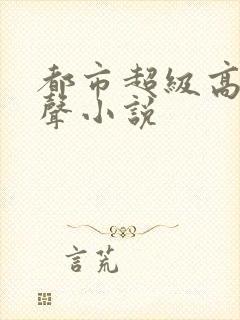 都市超級高
聲小說
言荒